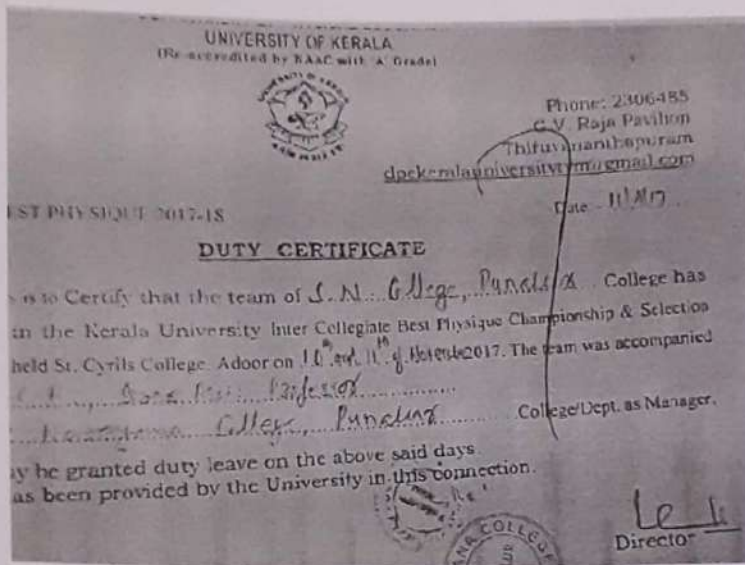 UNIVERSITY OF KERALA
(Re-accredited by NAAC with 'A' Grade)
Phone: 2306485
G.V. Raja Pavilion
Thiruvananthapuram
dpekeralauniversitytvm@gmail.com
Date 11/11/17
EST PHYSIQUE 2017-18
DUTY CERTIFICATE
s is to Certify that the team of S.N. College, Punalur College has
in the Kerala University Inter Collegiate Best Physique Championship & Selection
held St. Cyrils College, Adoor on 10th and 11th of November 2017. The team was accompanied
Professor
College, Punalur College/Dept. as Manager.
ay be granted duty leave on the above said days
as been provided by the University in this connection.
ANA COLLEGE
Director